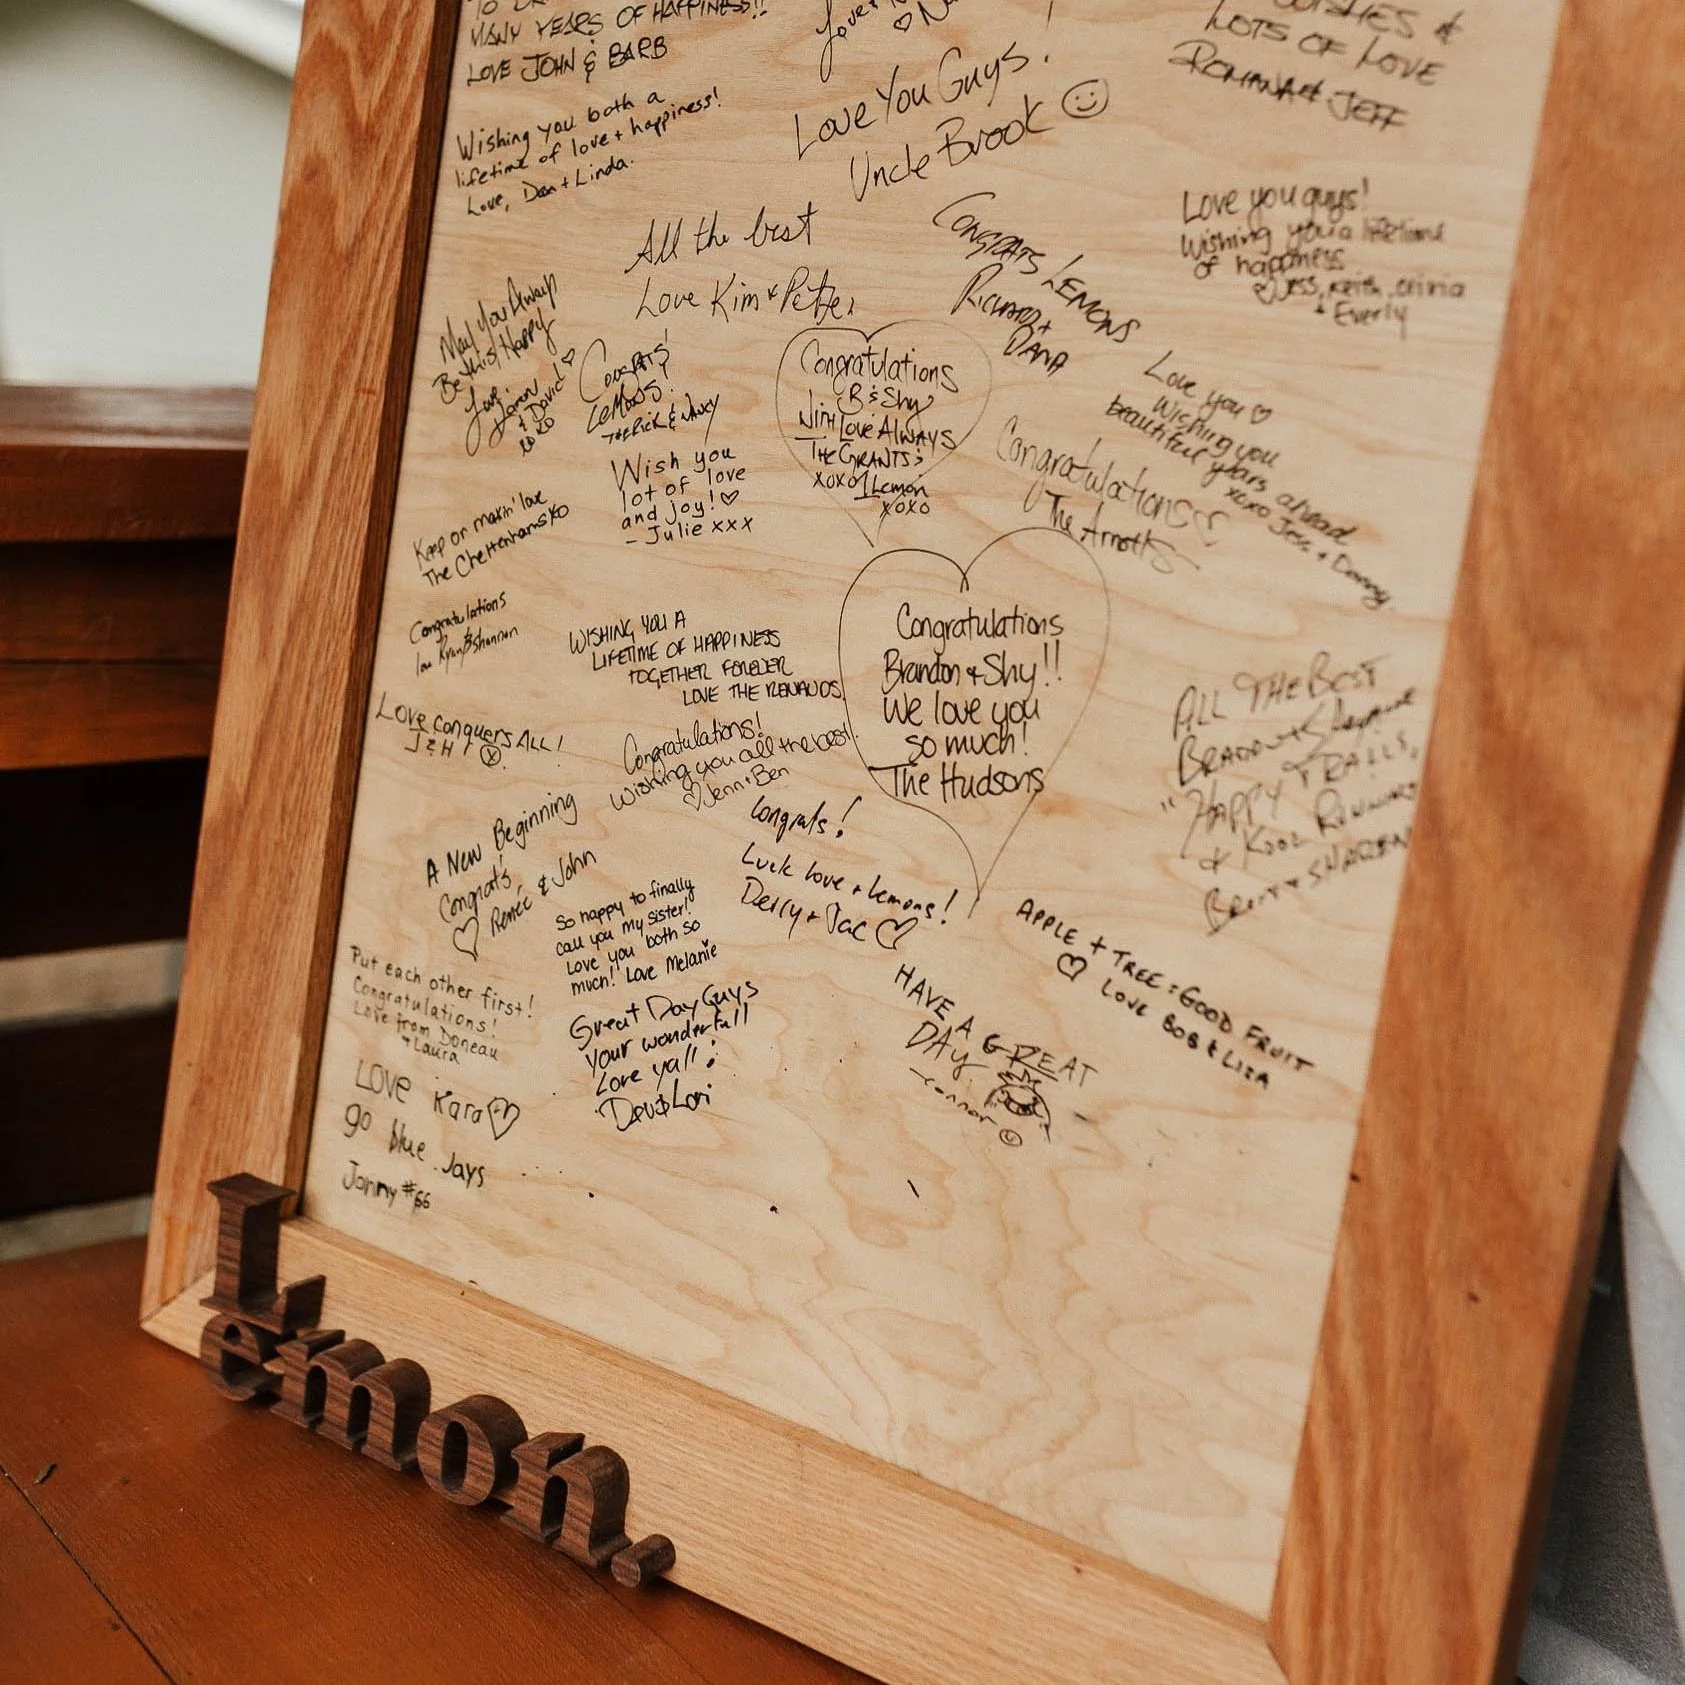 MANY YEARS OF HAPPINESS!!
LOVE JOHN & BARB
Love
Love You Guys!
Uncle Brook
WISHES &
LOTS OF LOVE
ROMINA & JEFF
Wishing you both a
lifetime of love + happiness!
Love, Dan + Linda.
All the best
Love Kim & Peter
CONGRATS LEMONS
RICHARD +
DANA
Love you guys!
Wishing you a lifetime
of happiness
Jess, Keith, Olivia
+ Everly
May You Always
Be this Happy
Love
Loren
& David
XOXO
CONGRATS!
LEMONS!
THE RICK & NANCY
Congratulations
B & Shy
With Love Always
THE GRANTS &
XOXO 1 Lemon
XOXO
Love you
Wishing you
beautiful years ahead
xoxo Jess + Danny
Wish you
lot of love
and joy!
- Julie xxx
Congratulations
The Arnotts
Keep on makin' love
The Cheltenhams XO
Congratulations
Ryan & Shannon
WISHING YOU A
LIFETIME OF HAPPINESS
TOGETHER FOREVER
LOVE THE RENAUDS
Congratulations
Brandon & Shy!!
We love you
so much!
The Hudsons
LOVE CONQUERS ALL!
J & H
Congratulations!
Wishing you all the best!
Jenn + Ben
ALL THE BEST
"HAPPY TRAILS,
& KOOL RUNNINGS
BRENT & SHAREN
A New Beginning
Congrat's
Reneé & John
Congrats!
Luck love + lemons!
Derry + Jac
So happy to finally
call you my sister!
Love you both so
much!! Love Melanie
APPLE + TREE = GOOD FRUIT
LOVE BOB & LIZA
Put each other first!
Congratulations!
Love from Doneau
+ Laura
Great Day Guys
Your wonderfull
Love yall!
Dev & Lori
HAVE A GREAT
DAY
-connor
LOVE Kara
go blue Jays
Jonny #66
Lemon.